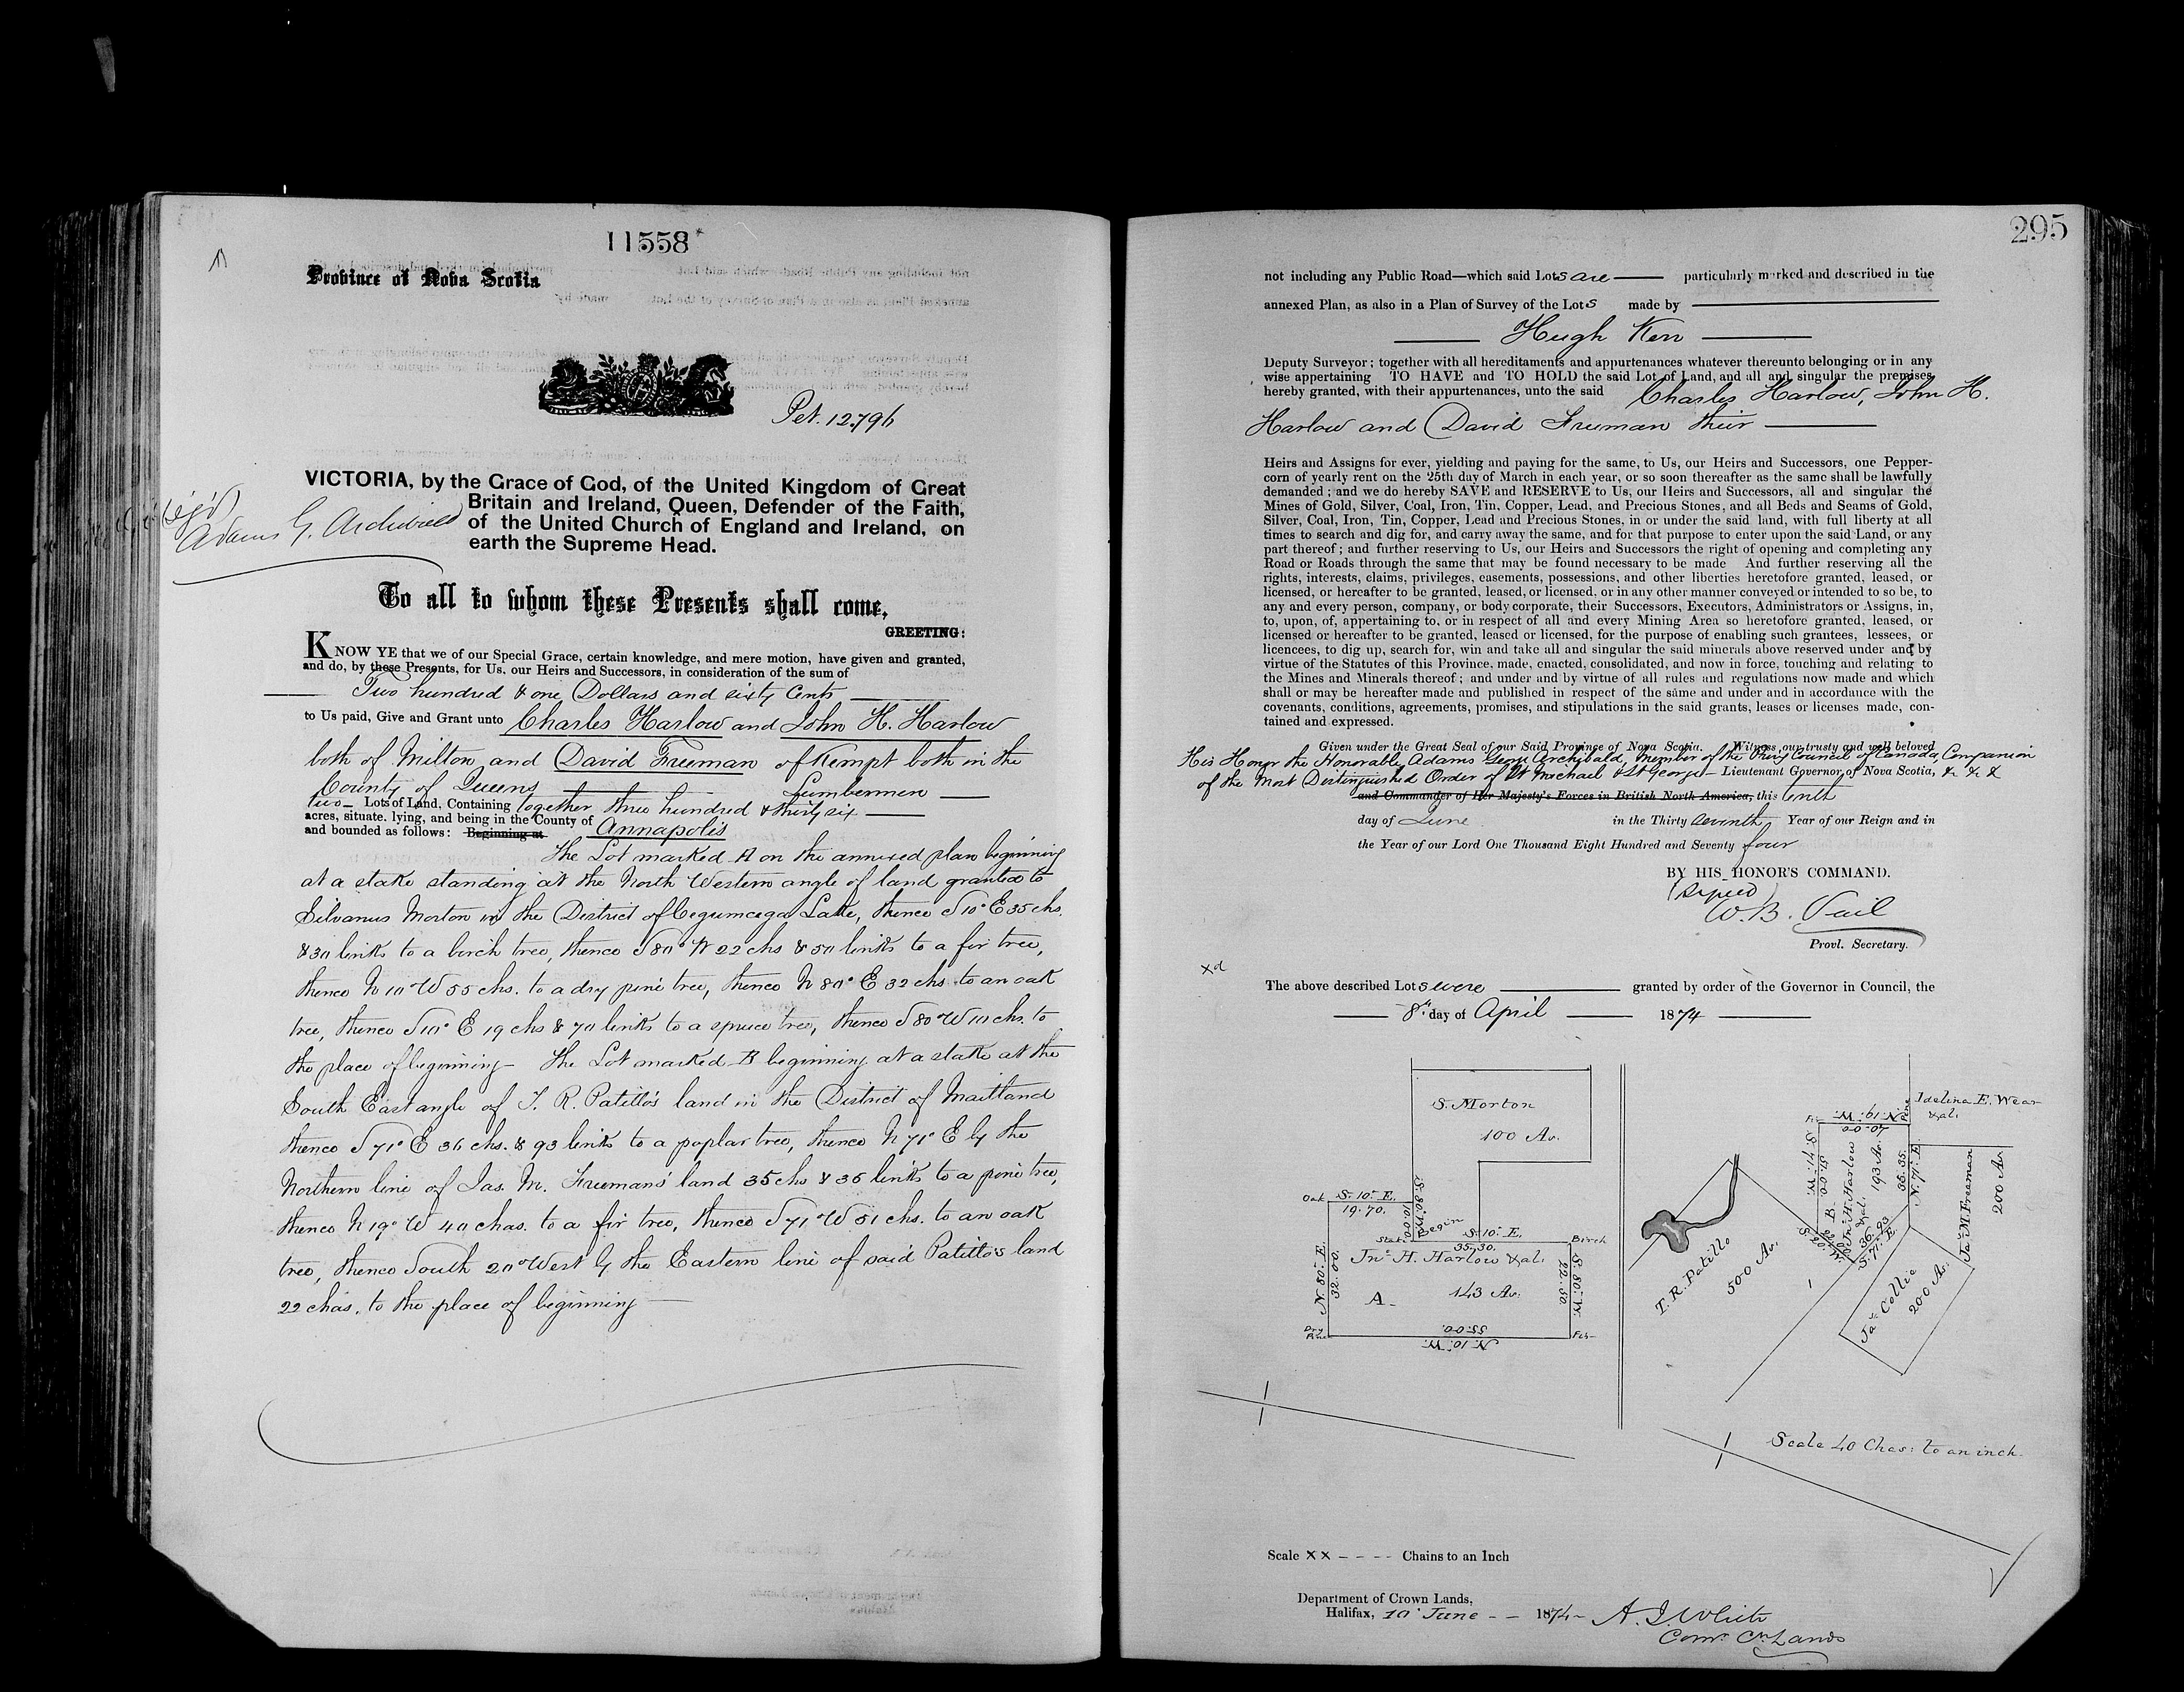 11558
Province of Nova Scotia
Pet. 12796
(Sg'd)
Adams G. Archibald
VICTORIA, by the Grace of God, of the United Kingdom of Great
Britain and Ireland, Queen, Defender of the Faith,
of the United Church of England and Ireland, on
earth the Supreme Head.
To all to whom these Presents shall come,
GREETING:
KNOW YE that we of our Special Grace, certain knowledge, and mere motion, have given and granted,
and do, by these Presents, for Us, our Heirs and Successors, in consideration of the sum of
Two hundred & one Dollars and sixty Cents
to Us paid, Give and Grant unto Charles Harlow and John H. Harlow
both of Milton and David Freeman of Kempt both in the
County of Queens Lumbermen
two Lots of Land, Containing together three hundred & thirty six
acres, situate. lying, and being in the County of Annapolis
and bounded as follows: Beginning at
The Lot marked A on the annexed plan beginning
at a stake standing at the North Western angle of land granted to
Silvanus Morton in the District of Cegumcega Lake, thence S 10° E 35 chs.
& 30 links to a birch tree, thence S 80° W 22 chs & 50 links to a fir tree,
thence N 10° W 55 chs. to a dry pine tree, thence N 80° E 32 chs. to an oak
tree, thence S 10° E 19 chs & 70 links to a spruce tree, thence S 80° W 10 chs. to
the place of beginning— The Lot marked B beginning at a stake at the
South East angle of T. R. Patillo's land in the District of Maitland
thence S 71° E 36 chs. & 93 links to a poplar tree, thence N 71° E by the
Northern line of Jas. M. Freeman's land 35 chs & 35 links to a pine tree,
thence N 19° W 40 chas. to a fir tree, thence S 71° W 51 chs. to an oak
tree, thence South 20° West by the Eastern line of said Patillo's land
22 chas. to the place of beginning—
295
not including any Public Road—which said Lots are particularly marked and described in the
annexed Plan, as also in a Plan of Survey of the Lots made by
Hugh Kerr
Deputy Surveyor; together with all hereditaments and appurtenances whatever thereunto belonging or in any
wise appertaining TO HAVE and TO HOLD the said Lot of Land, and all and singular the premises
hereby granted, with their appurtenances, unto the said Charles Harlow, John H.
Harlow and David Freeman their
Heirs and Assigns for ever, yielding and paying for the same, to Us, our Heirs and Successors, one Pepper-
corn of yearly rent on the 25th day of March in each year, or so soon thereafter as the same shall be lawfully
demanded; and we do hereby SAVE and RESERVE to Us, our Heirs and Successors, all and singular the
Mines of Gold, Silver, Coal, Iron, Tin, Copper, Lead, and Precious Stones, and all Beds and Seams of Gold,
Silver, Coal, Iron, Tin, Copper, Lead and Precious Stones, in or under the said land, with full liberty at all
times to search and dig for, and carry away the same, and for that purpose to enter upon the said Land, or any
part thereof; and further reserving to Us, our Heirs and Successors the right of opening and completing any
Road or Roads through the same that may be found necessary to be made And further reserving all the
rights, interests, claims, privileges, easements, possessions, and other liberties heretofore granted, leased, or
licensed, or hereafter to be granted, leased, or licensed, or in any other manner conveyed or intended to so be, to
any and every person, company, or body corporate, their Successors, Executors, Administrators or Assigns, in,
to, upon, of, appertaining to, or in respect of all and every Mining Area so heretofore granted, leased, or
licensed or hereafter to be granted, leased or licensed, for the purpose of enabling such grantees, lessees, or
licencees, to dig up, search for, win and take all and singular the said minerals above reserved under and by
virtue of the Statutes of this Province, made, enacted, consolidated, and now in force, touching and relating to
the Mines and Minerals thereof; and under and by virtue of all rules and regulations now made and which
shall or may be hereafter made and published in respect of the same and under and in accordance with the
covenants, conditions, agreements, promises, and stipulations in the said grants, leases or licenses made, con-
tained and expressed.
Given under the Great Seal of our Said Province of Nova Scotia. Witness our trusty and well beloved
His Honor the Honorable Adams George Archibald, Member of the Privy Council of Canada, Companion
of the Most Distinguished Order of St Michael & St George— Lieutenant Governor of Nova Scotia, & & &
and Commander of Her Majesty's Forces in British North America, this tenth
day of June in the Thirty seventh Year of our Reign and in
the Year of our Lord One Thousand Eight Hundred and Seventy four
BY HIS HONOR'S COMMAND.
(Signed)
W. B. Vail
Provl. Secretary.
xd
The above described Lots were granted by order of the Governor in Council, the
8th day of April 1874
S. Morton
100 Ac.
Oak S. 10° E.
19.70.
S. 80° W.
10.00
Stake Begin S. 10° E. Birch
35.30.
Jno. H. Harlow & al.
N. 80° E.
32.00.
A 143 Ac.
S. 80° W.
22.50
Dry Pine
55.00.
N. 10° W.
Fir
Idelina E. Wear
& al.
Fir N. 19° W. Pine
40.00
S. 71° W.
51.00
B.
Jno. H. Harlow
& al.
193 Ac.
35.35.
N. 71° E.
36.93
S. 71° E.
T. R. Patillo
500 Ac.
Jas. M. Freeman
200 Ac.
Jas. Collie
200 Ac.
Scale 40 Chas: to an inch.
Scale x x - - - - Chains to an Inch
Department of Crown Lands,
Halifax, 10 June 1874 A. J. White
Comr. Cn. Lands